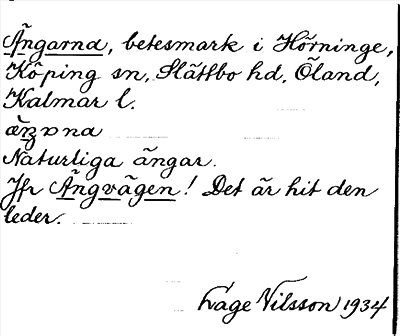 Ängarna, betesmark i Hörninge,
Köping sn, Slättbo hd, Öland,
Kalmar l.
äŋana
Naturliga ängar.
Jfr Ängvägen! Det är hit den
leder.
Lage Nilsson 1934